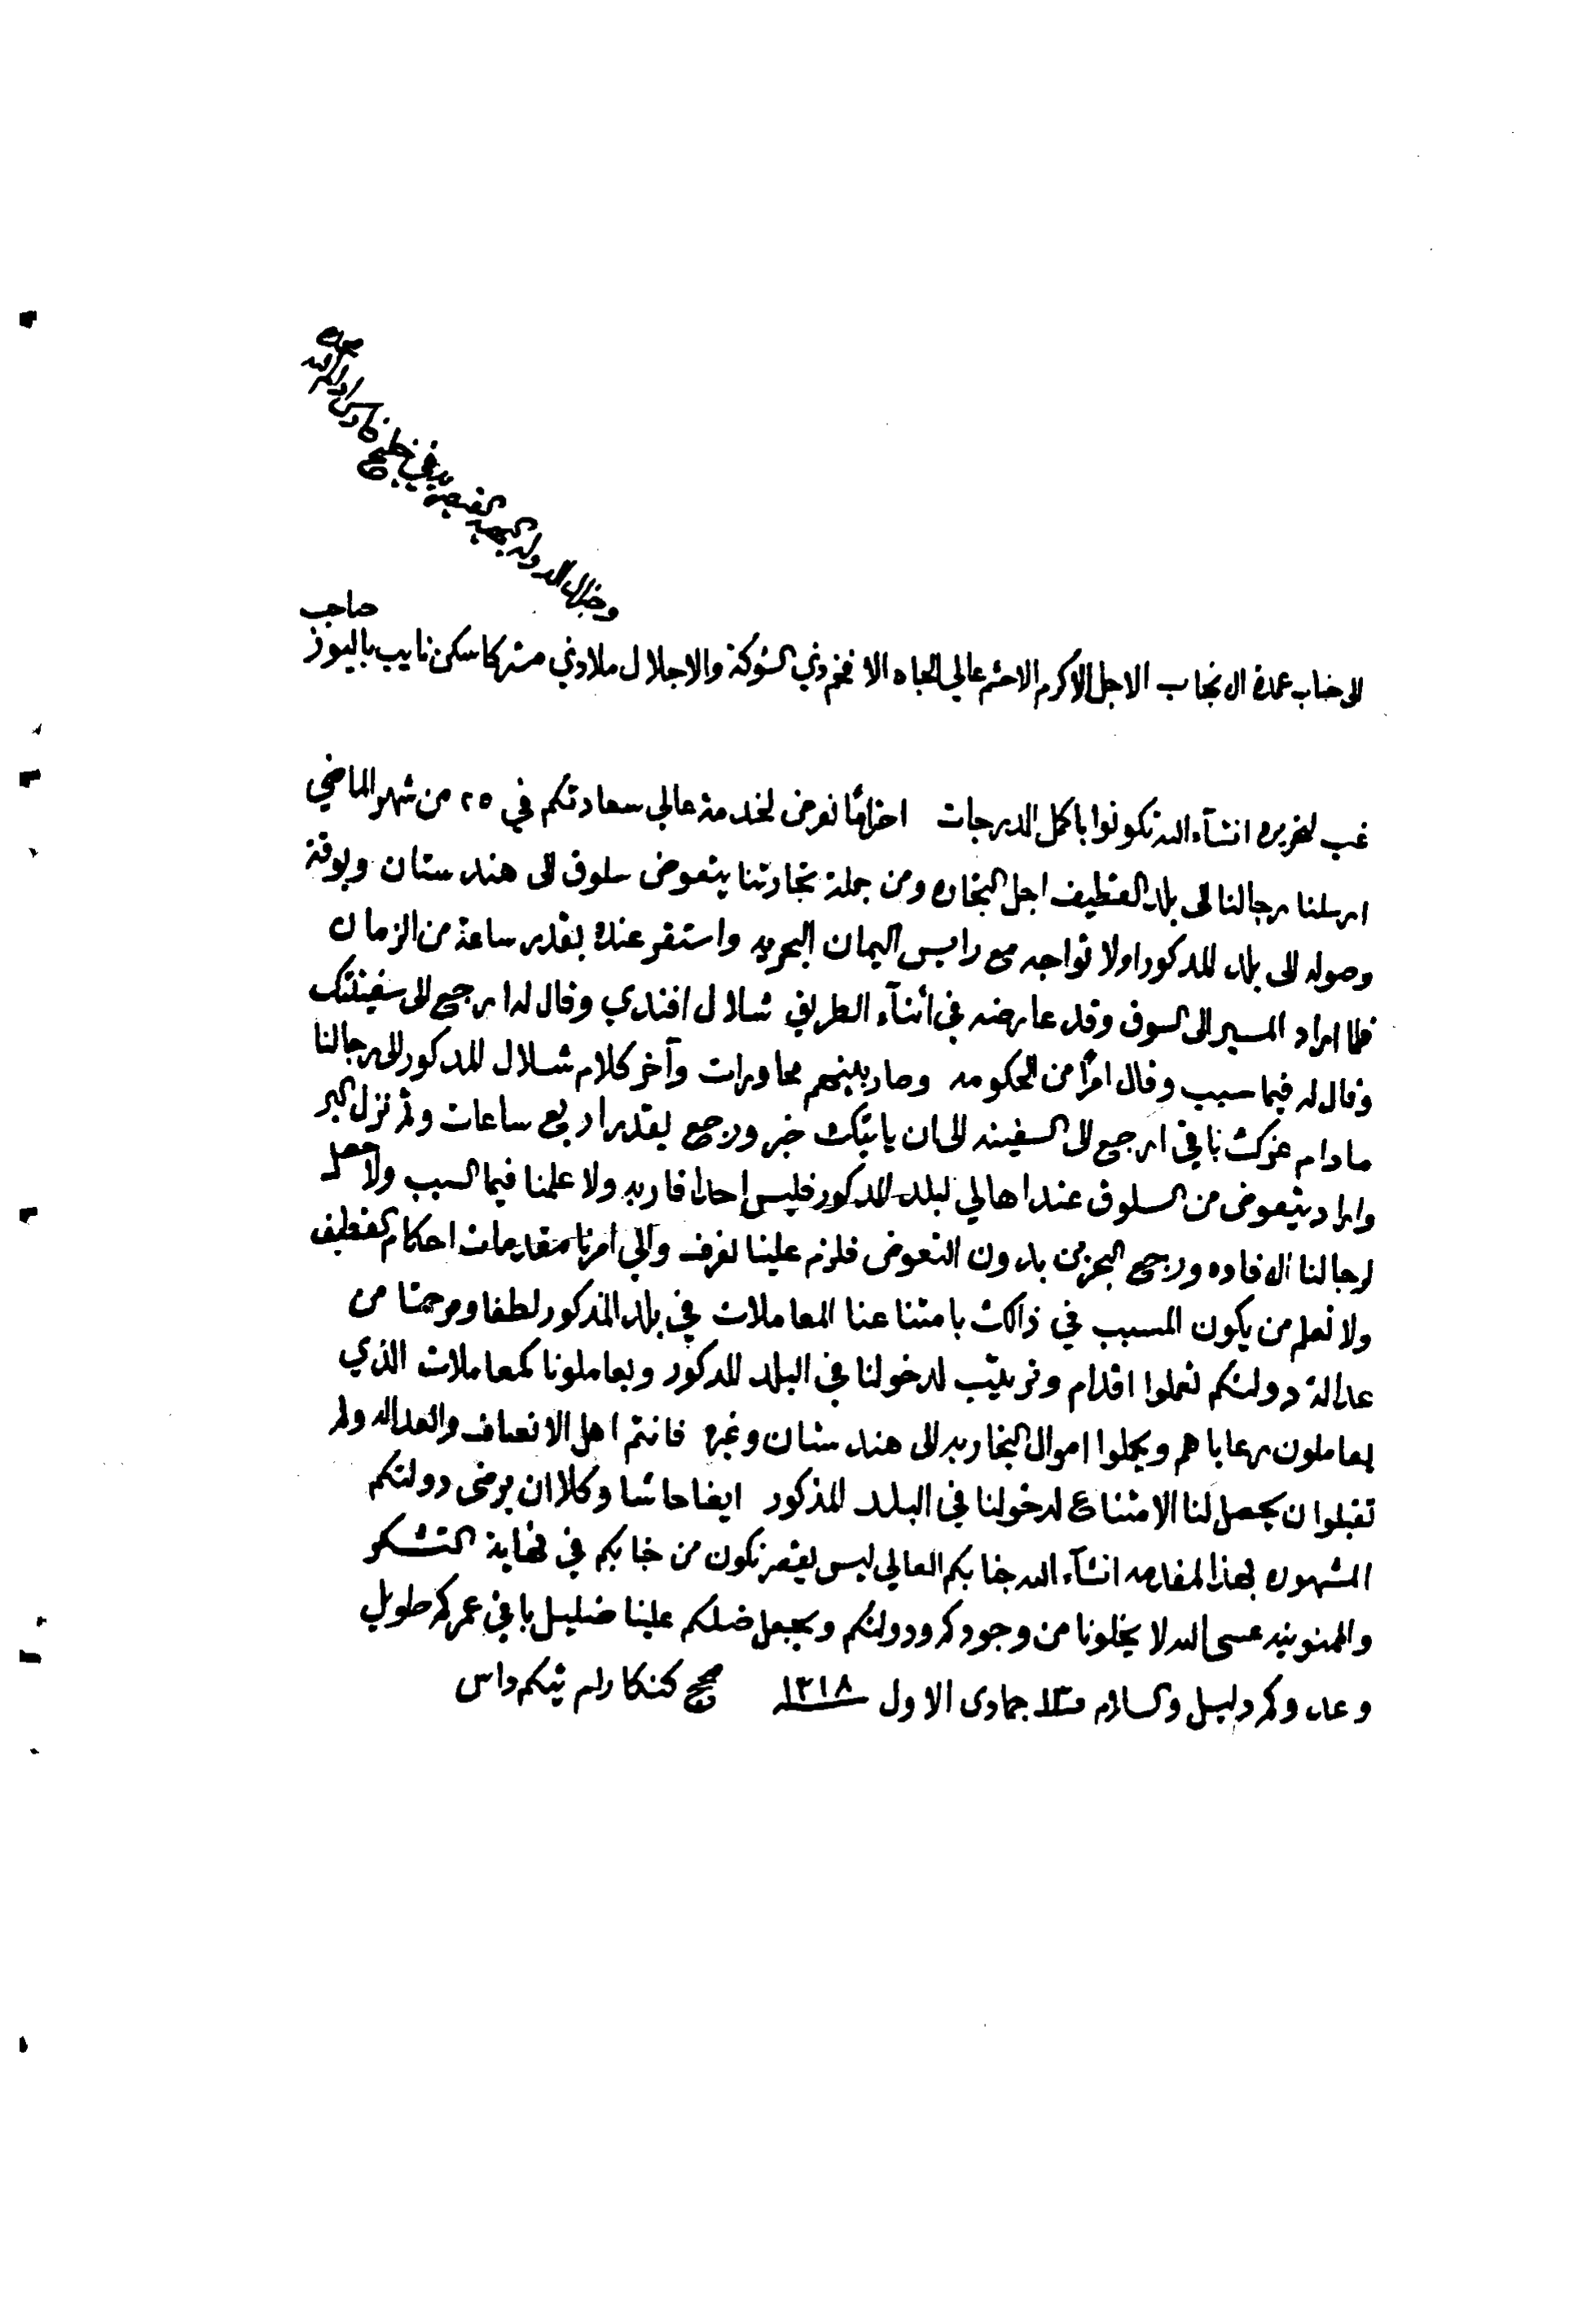 الى جناب عمدة الانجاب الاجل الاكرم الاحشم عالي الجاه الافخم ذي الشوكة والاجلال ملاذي مستر كاسكن نايب باليوز
صاحب
وجنرال الدولة البهية القيصرية في خليج فارس ادام الله
غب لتحريره انشآء الله تكونوا باكمل الدرجات احتراماً نعرض لخدمة عالي سعادتكم في ٢٥ من شهر الماضي
ارسلنا رجالنا الى بلد القطيف اجل التجاره ومن جملة تجارتنا يتعوض سلوق الى هندستان وبوقة
وصوله الى بلد المدكور اولا تواجه مع رايس اليمان البحريه واستقر عنده بقدر ساعة من الزمان
فلما اراد المسير الى السوق وقد عارضه في اثنآء الطريق شلال افندي وقال له ارجع الى سفينتك
وقال له فيما سبب وقال امراً من الحكومه وصار بينهم محاورات وآخر كلام شلال المدكور الى رجالنا
مادام عزك باقي ارجع الى السفينه الى ان ياتيك خبر ورجع بقدر اربع ساعات ونزل البر
واراد يتعوض من السلوق عند اهالي لبلد المدكور فليس احدا قاربه ولا علمنا فيما السبب ولا حصل
لرجالنا الافاده ورجع البحرين بدون التعوض فلزم علينا نعرف والي امرنا مقدمات احكام القطيف
ولا نعلم من يكون المسبب في ذالك بامتناعنا المعاملات في بلد المذكور لطفا ومرحمتا من
عدالة دولتكم تعملوا اقدام وترتيب لدخولنا في البلد المدكور ويعاملونا كمعاملات الذي
يعاملون رعاياهم ويحملوا اموال التجاريه الى هندستان وغيره فانتم اهل الانصاف والعداله ولم
تقبلوا ان يحصل لنا الامتناع لدخولنا في البلد المذكور ايضا حاشا وكلا ان يرضى دولتكم
المشهوره بهذا المقدمه انشآء الله جنابكم العالي ليس يقصر نكون من جنابكم في نهاية التشكر
والممنونيه عسى الله لا يخلونا من وجودكم ودولتكم ويجعل ضلكم علينا ضليل باقي عمركم طويل
وعدوكم دليل والسلام جمادى الاول ١٣١٨ صحيح كنكا رام تيكم داس